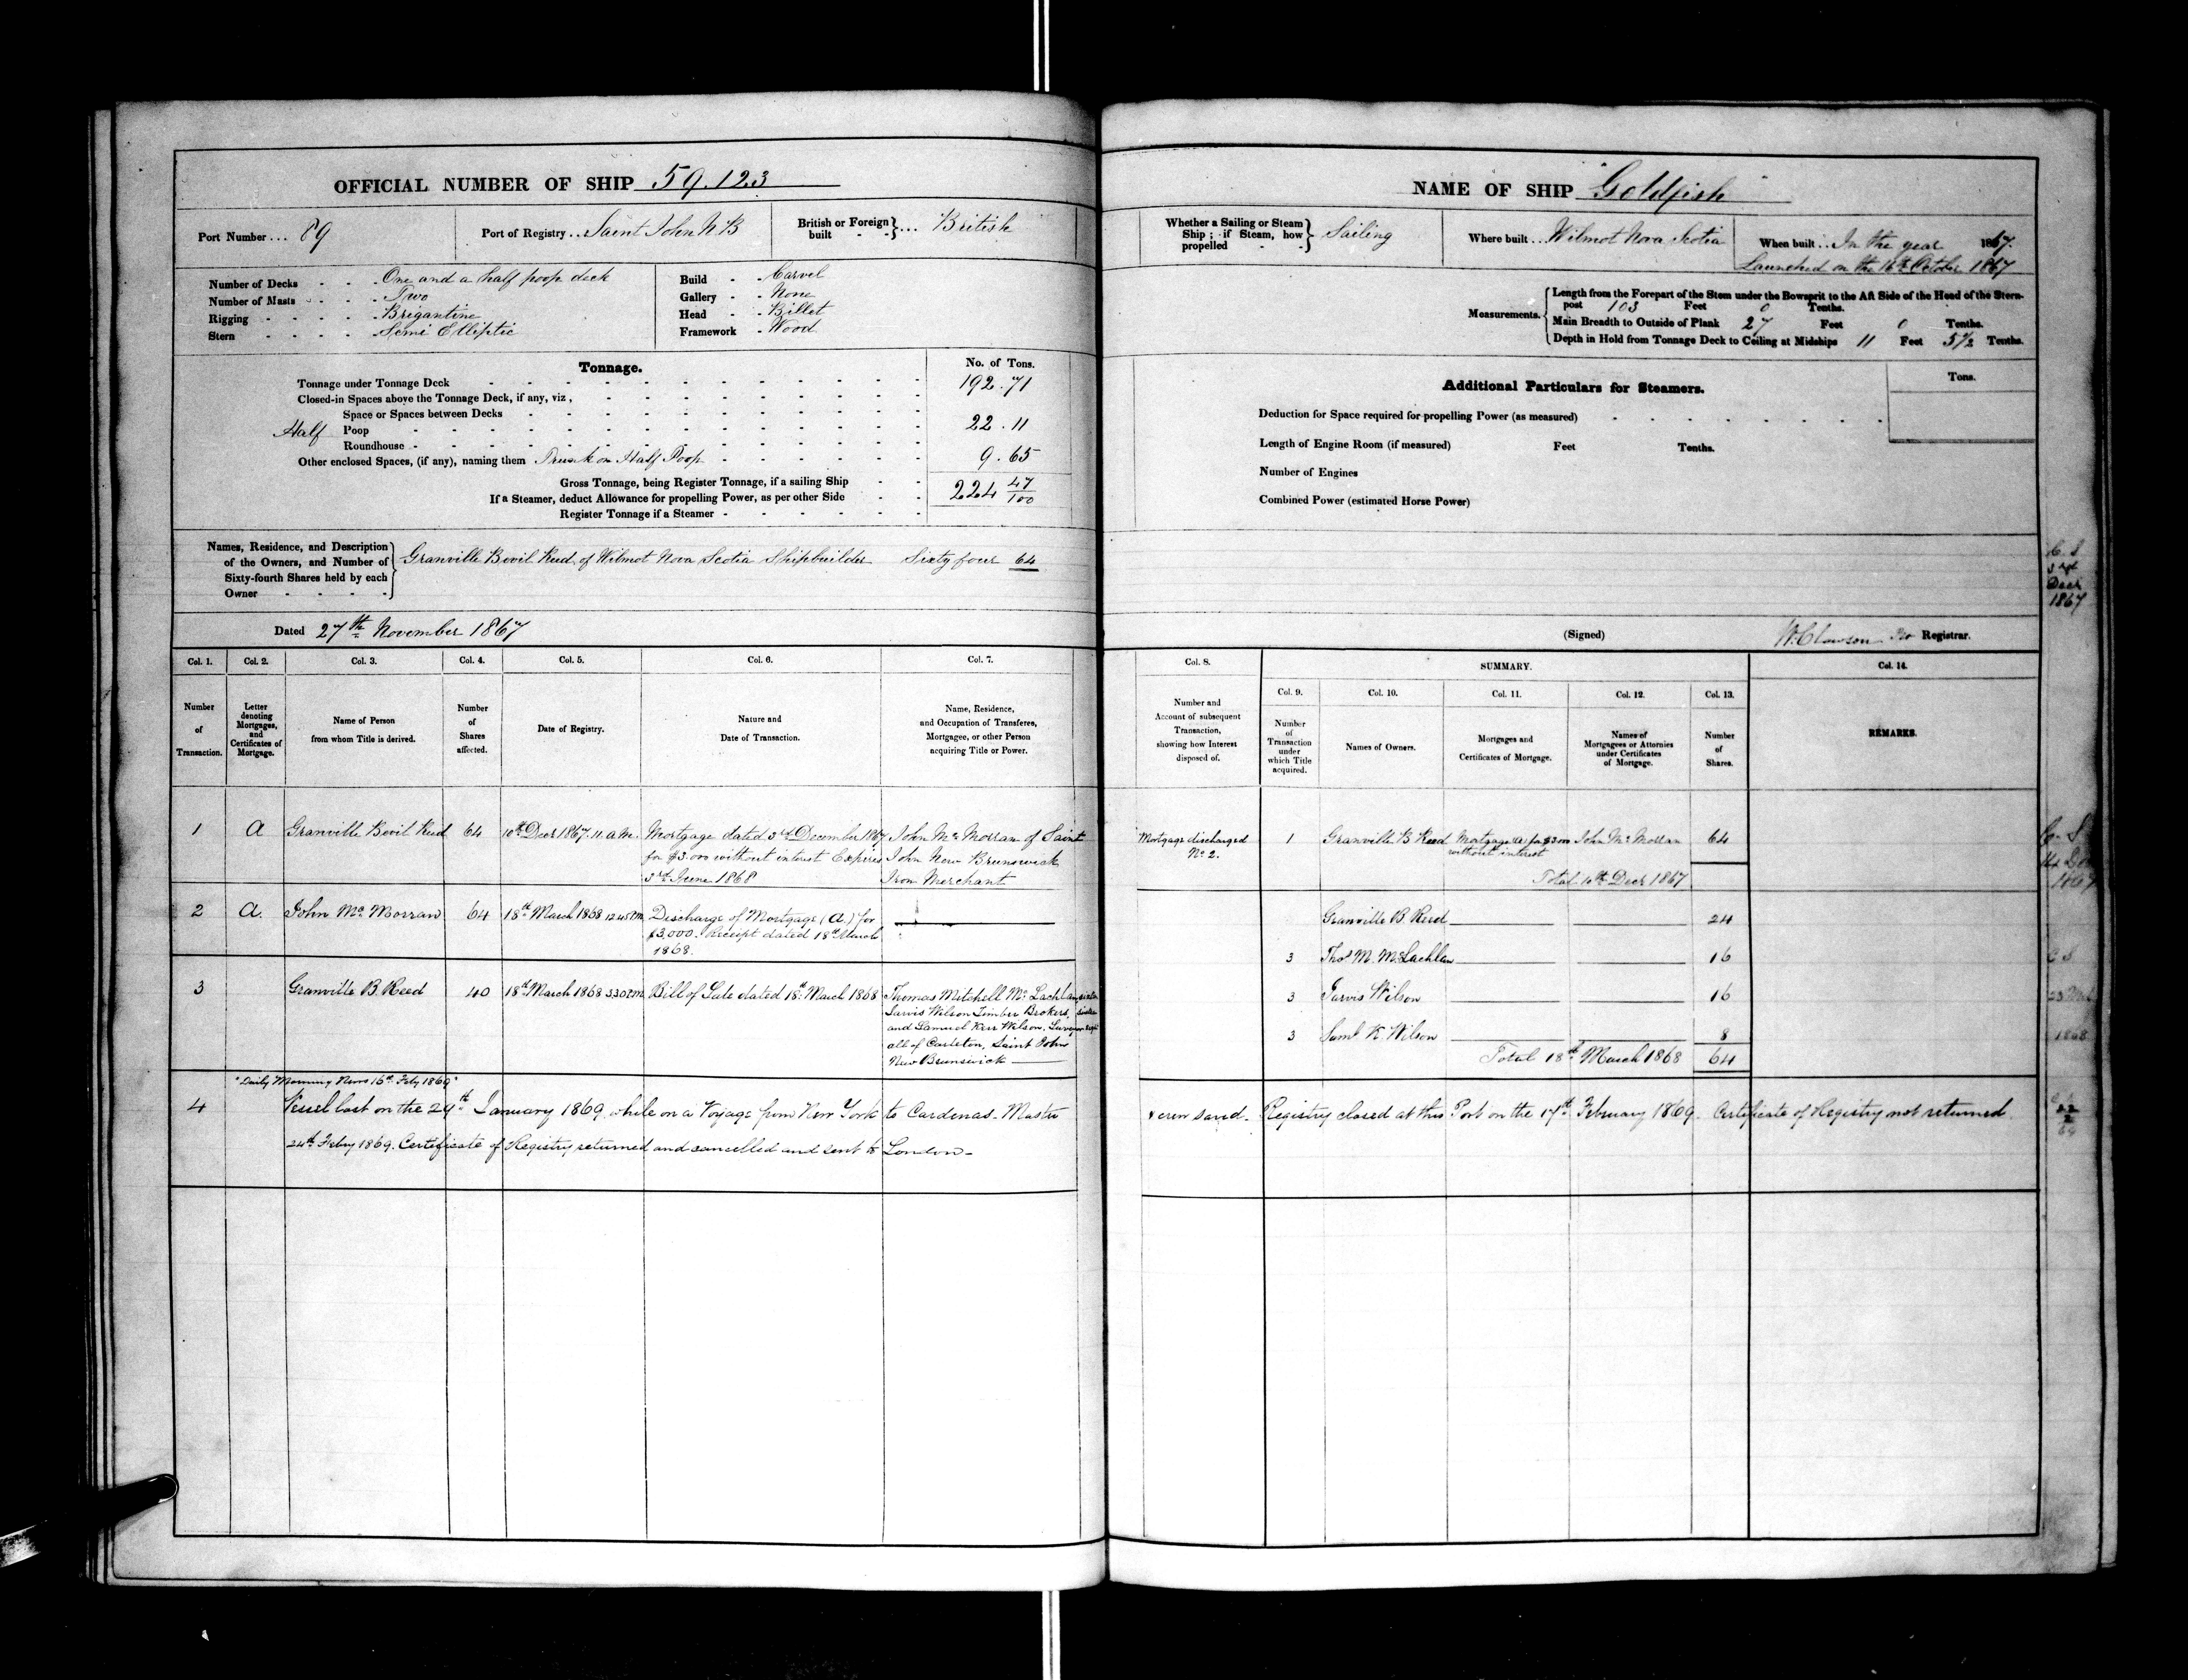 OFFICIAL NUMBER OF SHIP 59.123
Port Number... 89
Port of Registry.. Saint John N.B
British or Foreign built - - }... British
Number of Decks - - - One and a half poop deck
Number of Masts - - - Two
Rigging - - - - Brigantine
Stern - - - - Semi Elliptic
Build - - Carvel
Gallery - - None
Head - - Billet
Framework - Wood
Tonnage.
No. of Tons.
Tonnage under Tonnage Deck 192.71
Closed-in Spaces above the Tonnage Deck, if any, viz,
Space or Spaces between Decks
Half Poop 22.11
Roundhouse
Other enclosed Spaces, (if any), naming them Trunk on Half Poop 9.65
Gross Tonnage, being Register Tonnage, if a sailing Ship 224 47/100
If a Steamer, deduct Allowance for propelling Power, as per other Side
Register Tonnage if a Steamer
Names, Residence, and Description
of the Owners, and Number of
Sixty-fourth Shares held by each
Owner
Granville Bevil Reed of Wilmot Nova Scotia Shipbuilder Sixty four 64
Dated 27th November 1867
Col. 1. Col. 2. Col. 3. Col. 4. Col. 5. Col. 6. Col. 7.
Number of Transaction.
Letter denoting Mortgages, and Certificates of Mortgage.
Name of Person from whom Title is derived.
Number of Shares affected.
Date of Registry.
Nature and Date of Transaction.
Name, Residence, and Occupation of Transferee, Mortgagee, or other Person acquiring Title or Power.
1 A Granville Bevil Reed 64 10th Decr 1867. 11 a.m. Mortgage dated 3rd December 1867 John Mc Morran of Saint
for $3.000 without interest Expires John New Brunswick
3rd June 1868 Iron Merchant
2 A. John Mc Morran 64 18th March 1868 12.45 Pm Discharge of Mortgage (A.) for
$3,000. Receipt dated 18th March
1868.
3 Granville B. Reed 40 18th March 1868 3.30 P.m. Bill of Sale dated 18th March 1868 Thomas Mitchell Mc Lachlan, sixteen
Jarvis Wilson Timber Brokers, sixteen
and Samuel Kerr Wilson, Surveyor eight
all of Carleton, Saint John
New Brunswick
"Daily Morning News 16th Feby 1869"
4 Vessel lost on the 29th January 1869, while on a Voyage from New York to Cardenas. Master
24th Feby 1869. Certificate of Registry returned and cancelled and sent to London-
NAME OF SHIP "Goldfish"
Whether a Sailing or Steam
Ship; if Steam, how
propelled - - } Sailing
Where built... Wilmot Nova Scotia
When built... In the year 1867.
Launched on the 16th October 1867
Measurements.
Length from the Forepart of the Stem under the Bowsprit to the Aft Side of the Head of the Stern-
post 103 Feet 0 Tenths.
Main Breadth to Outside of Plank 27 Feet 0 Tenths.
Depth in Hold from Tonnage Deck to Ceiling at Midships 11 Feet 5 1/2 Tenths.
Additional Particulars for Steamers.
Tons.
Deduction for Space required for propelling Power (as measured)
Length of Engine Room (if measured) Feet Tenths.
Number of Engines
Combined Power (estimated Horse Power)
(Signed) Registrar.
Decr
1867
Col. 8.
SUMMARY.
Col. 14.
Col. 9. Col. 10. Col. 11. Col. 12. Col. 13.
Number and Account of subsequent Transaction, showing how Interest disposed of.
Number of Transaction under which Title acquired.
Names of Owners.
Mortgages and Certificates of Mortgage.
Names of Mortgagees or Attornies under Certificates of Mortgage.
Number of Shares.
REMARKS.
Mortgage discharged 1 Granville B Reed Mortgage (A) for $3000 John Mc Morran 64
No 2. without interest
Total 10th Decr 1867
Granville B Reed 24
3 Thos M. McLachlan 16
3 Jarvis Wilson 16
3 Saml K. Wilson 8
Total 18th March 1868 64
1868
& crew saved. Registry closed at this Port on the 17th February 1869. Certificate of Registry not returned.